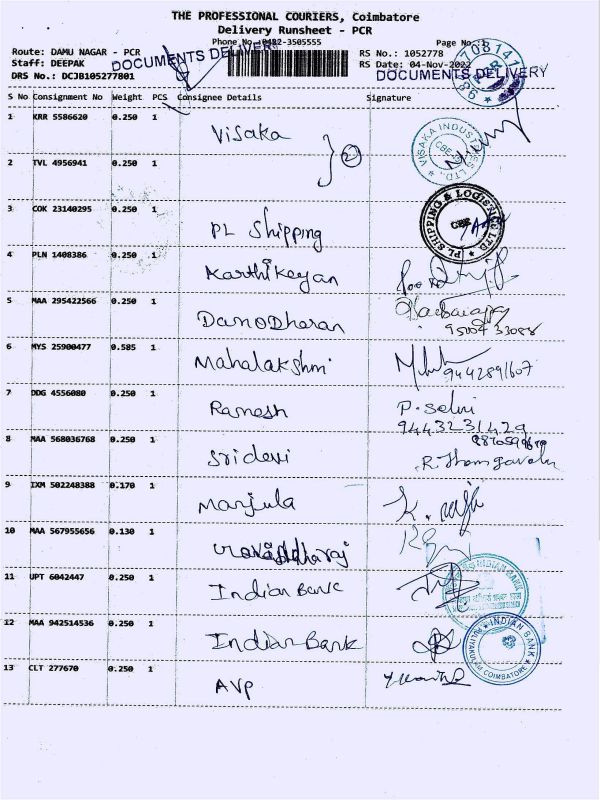 THE PROFESSIONAL COURIERS, Coimbatore
Delivery Runsheet - PCR
Phone No.:0422-3505555
Page No.:
Route: DAMU NAGAR - PCR
RS No.: 1052778
Staff: DEEPAK
RS Date: 04-Nov-2022
DOCUMENTS DELIVERY
DOCUMENTS DELIVERY
DRS No.: DCJB105277801
S No Consignment No Weight PCS Consignee Details Signature
1 KRR 5586620 0.250 1 Visaka
VISAKA INDUSTRIES LTD.,
CBE
2 TVL 4956941 0.250 1
2
3 COK 23140295 0.250 1 PL Shipping
PL SHIPPING & LOGISTICS LTD
CBE
4 PLN 1408386 0.250 1 Karthikeyan
5 MAA 295422566 0.250 1 Damodharan
6 MYS 25900477 0.585 1 Mahalakshmi
9442891607
7 DDG 4556080 0.250 1 Ramesh P. Selvi
9443231429
8 MAA 568036768 0.250 1 Sridevi
9 IXM 502248388 0.170 1 Manjula K.
10 MAA 567955656 0.130 1
11 UPT 6042447 0.250 1 Indian Bank
INDIAN BANK
12 MAA 942514536 0.250 1 Indian Bank
INDIAN BANK
COIMBATORE
13 CLT 277670 0.250 1 AVP